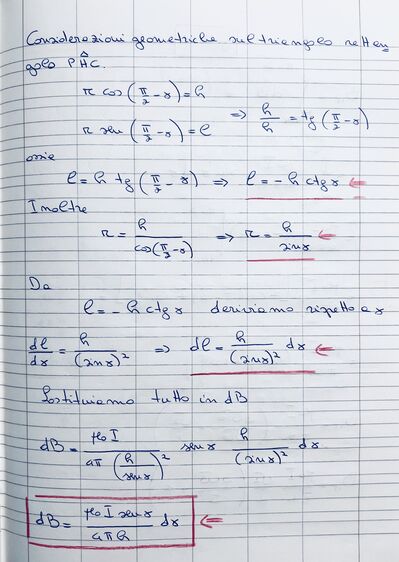 Considerazioni geometriche sul triangolo rettan
golo PĤC.
r cos (π/2 - γ) = h
r sen (π/2 - γ) = l
=> h/h = tg (π/2 - γ)
ossia
l = h tg (π/2 - γ) => l = - h ctg γ
Inoltre
r = h/cos(π/2 - γ) => r = h/sin γ
Da
l = - h ctg γ deriviamo rispetto a γ
dl/dγ = h/(sin γ)² => dl = h/(sin γ)² dγ
Sostituiamo tutto in dB
dB = μ₀ I/4π (h/sen γ)² sen γ h/(sin γ)² dγ
dB = μ₀ I sen γ/4πh dγ